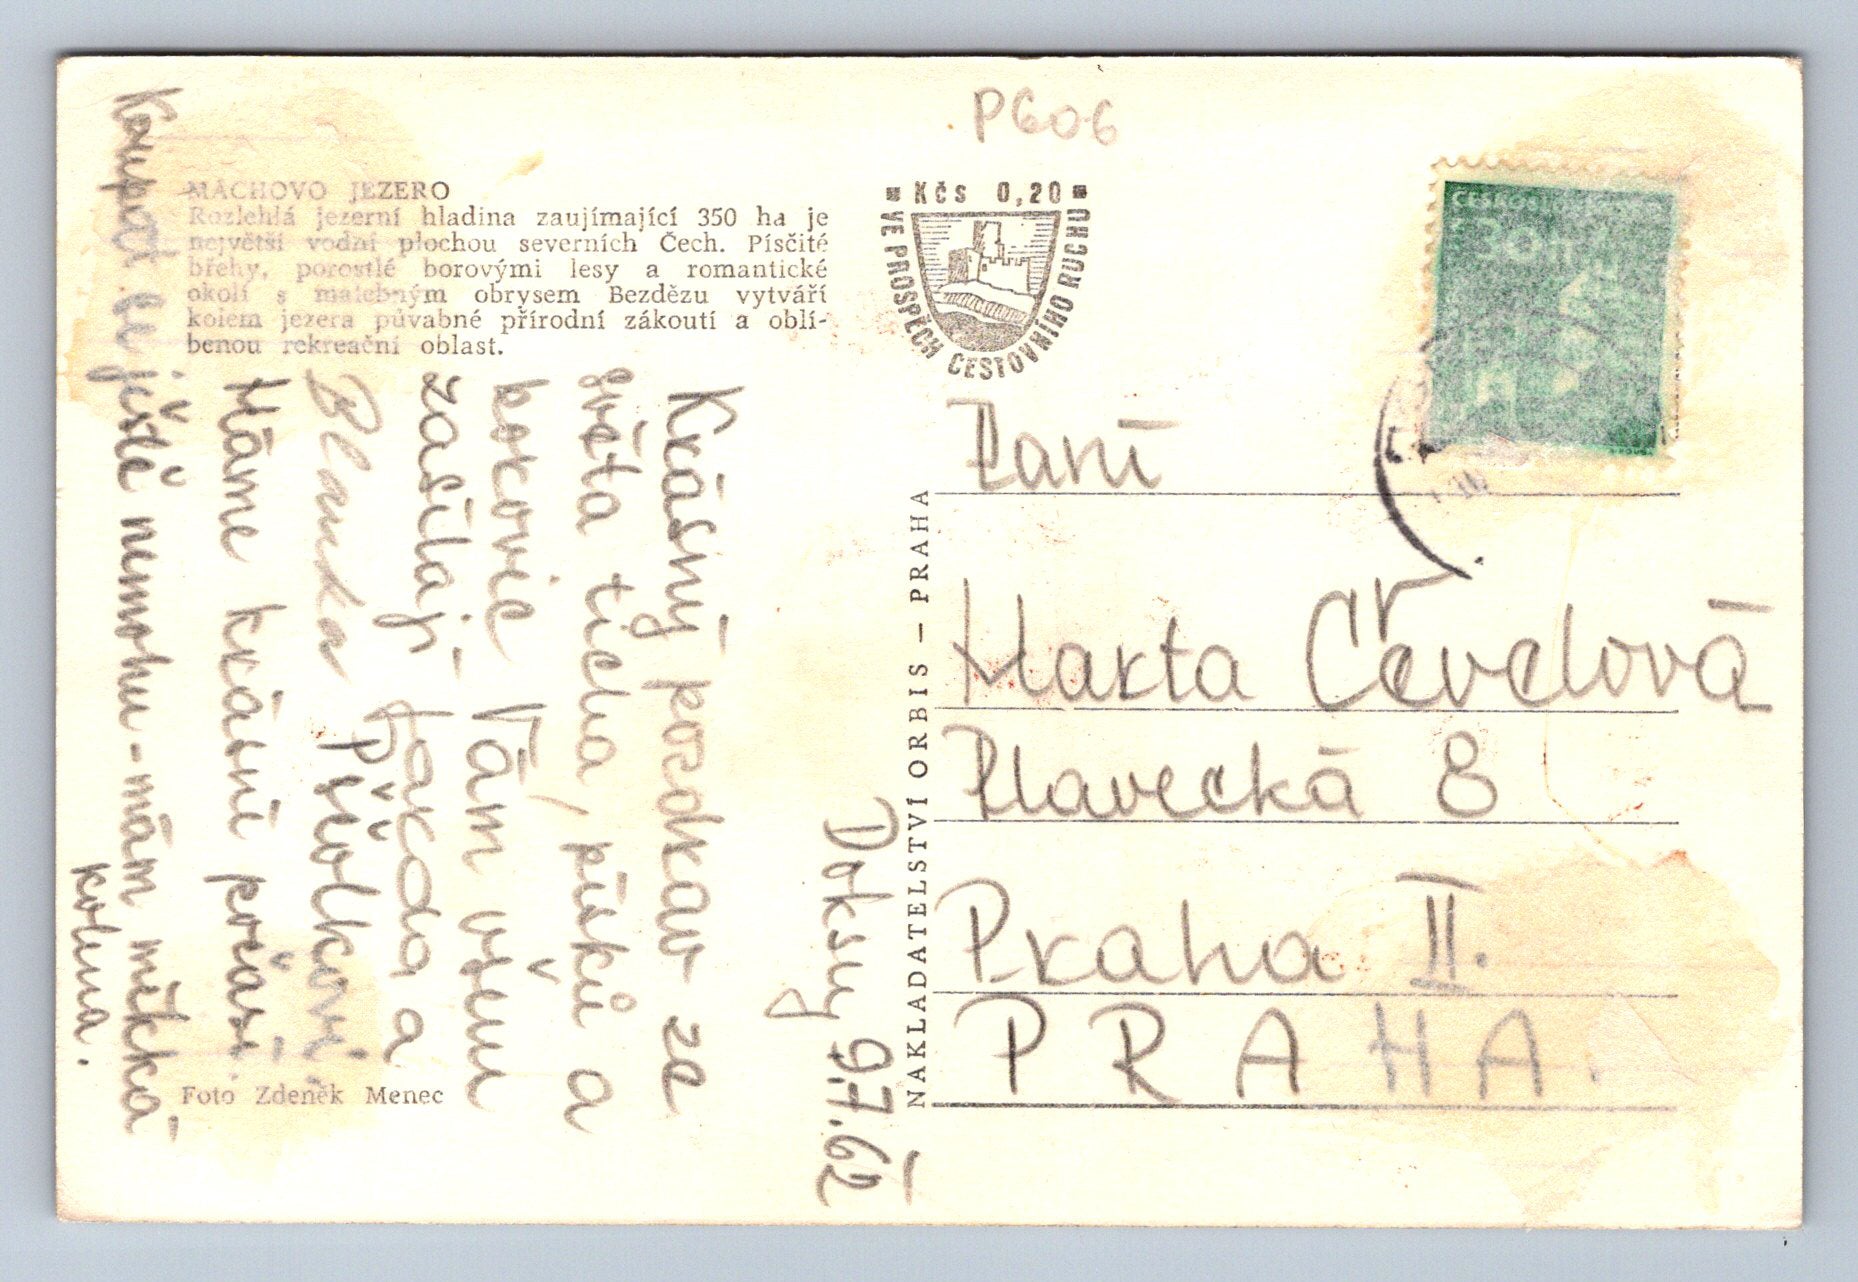 P606
MÁCHOVO JEZERO
Rozlehlá jezerní hladina zaujímající 350 ha je
největší vodní plochou severních Čech. Písčité
břehy, porostlé borovými lesy a romantické
okolí s malebným obrysem Bezdězu vytváří
kolem jezera půvabné přírodní zákoutí a oblí-
benou rekreační oblast.
Kčs 0,20
VE PROSPĚCH CESTOVNÍHO RUCHU
30 h
Doksy 9.7.62
Krásný pozdrav ze
světa ticha, písků a
borovic Vám všem
zasílají Jarda a
Blanka Pšiolkovi
Máme krásné počasí.
Koupat se ještě nemohu - mám měkká
kolena.
Foto Zdeněk Menec
NAKLADATELSTVÍ ORBIS – PRAHA
Paní
Marta Čevelová
Plavecká 8
Praha II.
PRAHA.